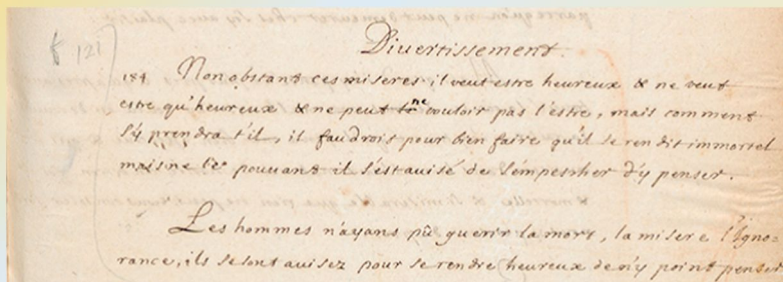 f 121
Diuertissement.
184. Nonobstant ces miseres il veut estre heureux & ne veut
estre qu'heureux & ne peut ne vouloir pas l'estre, mais comment
s'y prendra t'il, il faudroit pour bien faire qu'il se rendit immortel
mais ne le pouuant il s'est auisé de s'empescher d'y penser.
Les hommes n'ayans pû guerir la mort, la misere l'Igno-
rance, ils se sont auisez pour se rendre heureux de n'y point penser